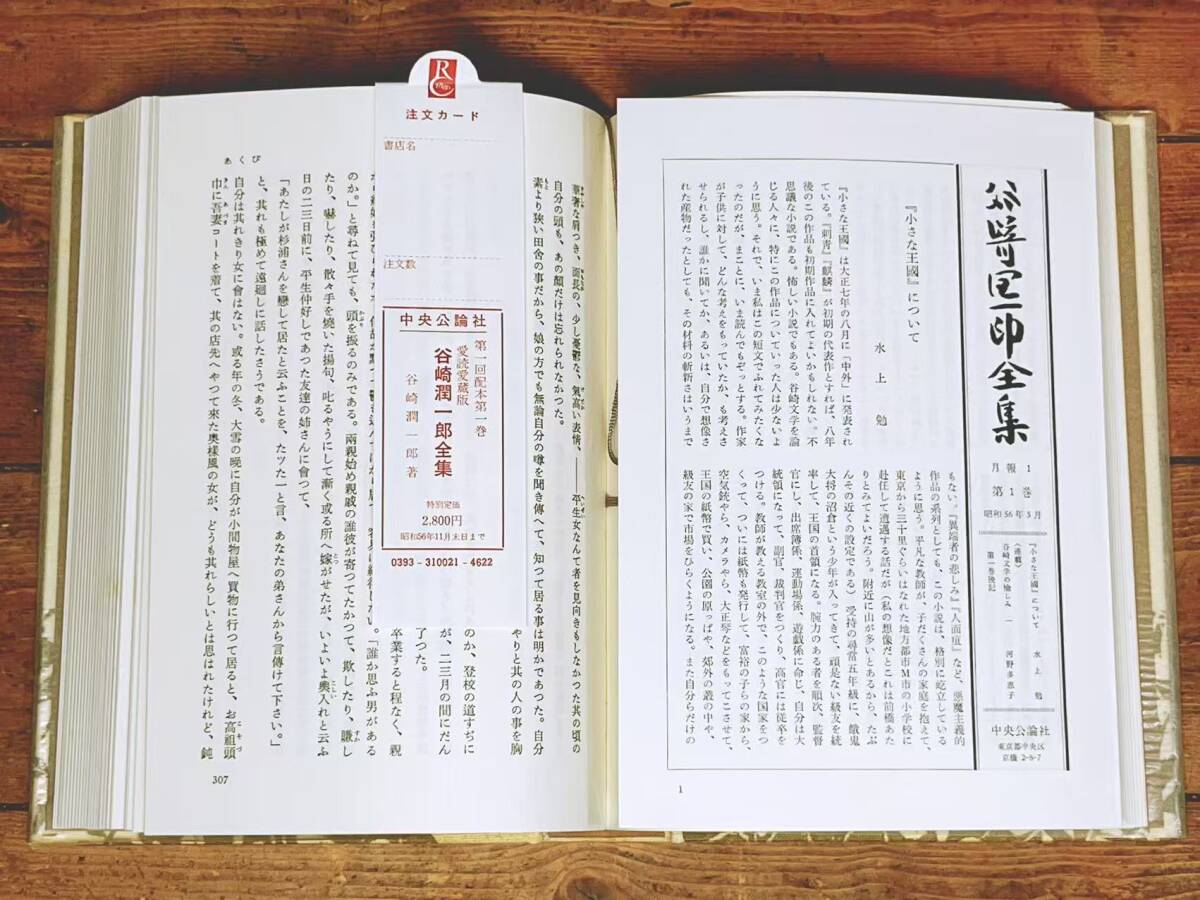 谷崎潤一郎全集
月報1
第1巻
昭和56年5月
『小さな王國』について 水上勉
〈連載〉
谷崎文学の愉しみ 一 河野多惠子
第一巻後記
中央公論社
東京都中央区
京橋2-8-7
『小さな王國』について
水上勉
『小さな王國』は大正七年の八月に「中外」に発表され
ている。『刺青』『麒麟』が初期の代表作とすれば、八年
後のこの作品も初期作品に入れてよいかもしれない。不
思議な小説である。怖しい小説でもある。谷崎文学を論
じる人々に、特にこの作品についていった人は少ないよ
うに思う。それで、いま私はこの短文でふれてみたくな
ったのだが、まことに、いま読んでもぞっとする。作家
が子供に対して、どんな考えをもっていたか、も考えさ
せられるし、誰かに聞いてか、あるいは、自分で想像さ
れた産物だったとしても、その材料の斬新さはいうまで
もない。『異端者の悲しみ』『人面疽』など、悪魔主義的
作品の系列としても、この小説は、格別に屹立している
ように思う。平凡な教師が、子だくさんの家庭を抱えて、
東京から三十里ぐらいはなれた地方都市M市の小学校に
赴任して遭遇する話だが(私の想像だとこれは前橋あた
りとみてよいだろう。附近に山が多いとあるから、たぶ
んその近くの設定である)受持の尋常五年級に、餓鬼
大将の沼倉という少年が入ってきて、頑是ない級友を統
率して、王国の首領になる。腕力のある者を順次、監督
官にし、出席簿係、運動場係、遊戯係に命じ、自分は大
統領になって、副官、裁判官をつくり、高官には従卒を
つける。教師が教える教室の外で、このような国家をつ
くって、ついには紙幣も発行して、富裕の子らの家から、
空気銃やら、カメラやら、大正琴などをもってこさせて、
王国の紙幣で買い、公園の原っぱや、郊外の叢の中や、
級友の家で市場をひらくようになる。また自分らだけの
1
注文カード
書店名
注文数
中央公論社
第一回配本第一巻
愛読愛蔵版
谷崎潤一郎全集
谷崎潤一郎著
特別定価
2,800円
昭和56年11月末日まで
0393-310021-4622
華奢な肩つき、面長の、少し憂鬱な、気高い表情、――平生女なんて者を見向きもしなかつた其の頃の
自分の頭も、あの顔だけは忘れられなかつた。
素より狭い田舎の事だから、娘の方でも無論自分の噂を聞き傳へて、知つて居る事は明かであつた。自分
やりと其の人の事を胸
のか、登校の道すぢに
が、二三月の間にだん
了つた。
卒業すると程なく、親
のか。」と尋ねて見ても、頭を振るのみである。兩親始め親戚の誰彼が寄つてたかつて、欺したり、賺し
「誰か思ふ男がある
たり、嚇したり、散々手を燒いた揚句、叱るやうにして漸く或る所へ嫁がせたが、いよいよ輿入れと云ふ
日の二三日前に、平生仲好しであつた友達の姉さんに會つて、
「あたしが杉浦さんを戀して居たと云ふことを、たツた一と言、あなたの弟さんから言傳けて下さい。」
と、其れも極めて遠廻しに話したさうである。
自分は其れきり女に會はない。或る年の冬、大雪の晩に自分が小間物屋へ買物に行つて居ると、お高祖頭
巾に吾妻コートを着て、其の店先へやつて來た奥様風の女が、どうも其れらしいとは思はれたけれど、鈍
あくび
307